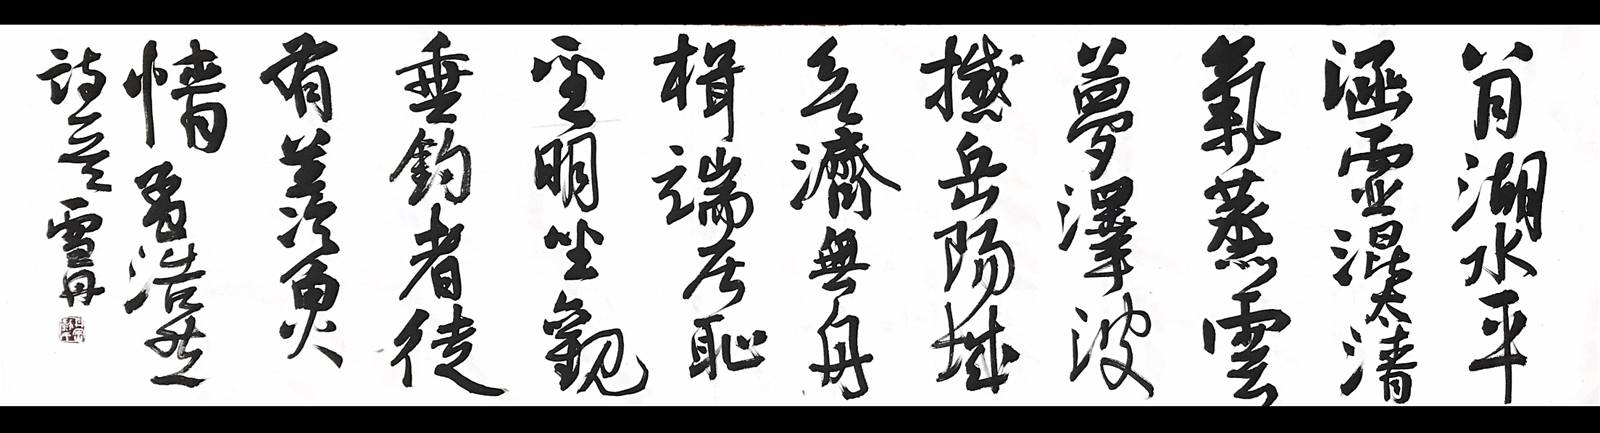 八月湖水平
涵虛混太清
氣蒸雲
夢澤波
撼岳陽城
欲濟無舟
楫端居恥
聖明坐觀
垂釣者徒
有羨魚
情孟浩然
詩意雪丹